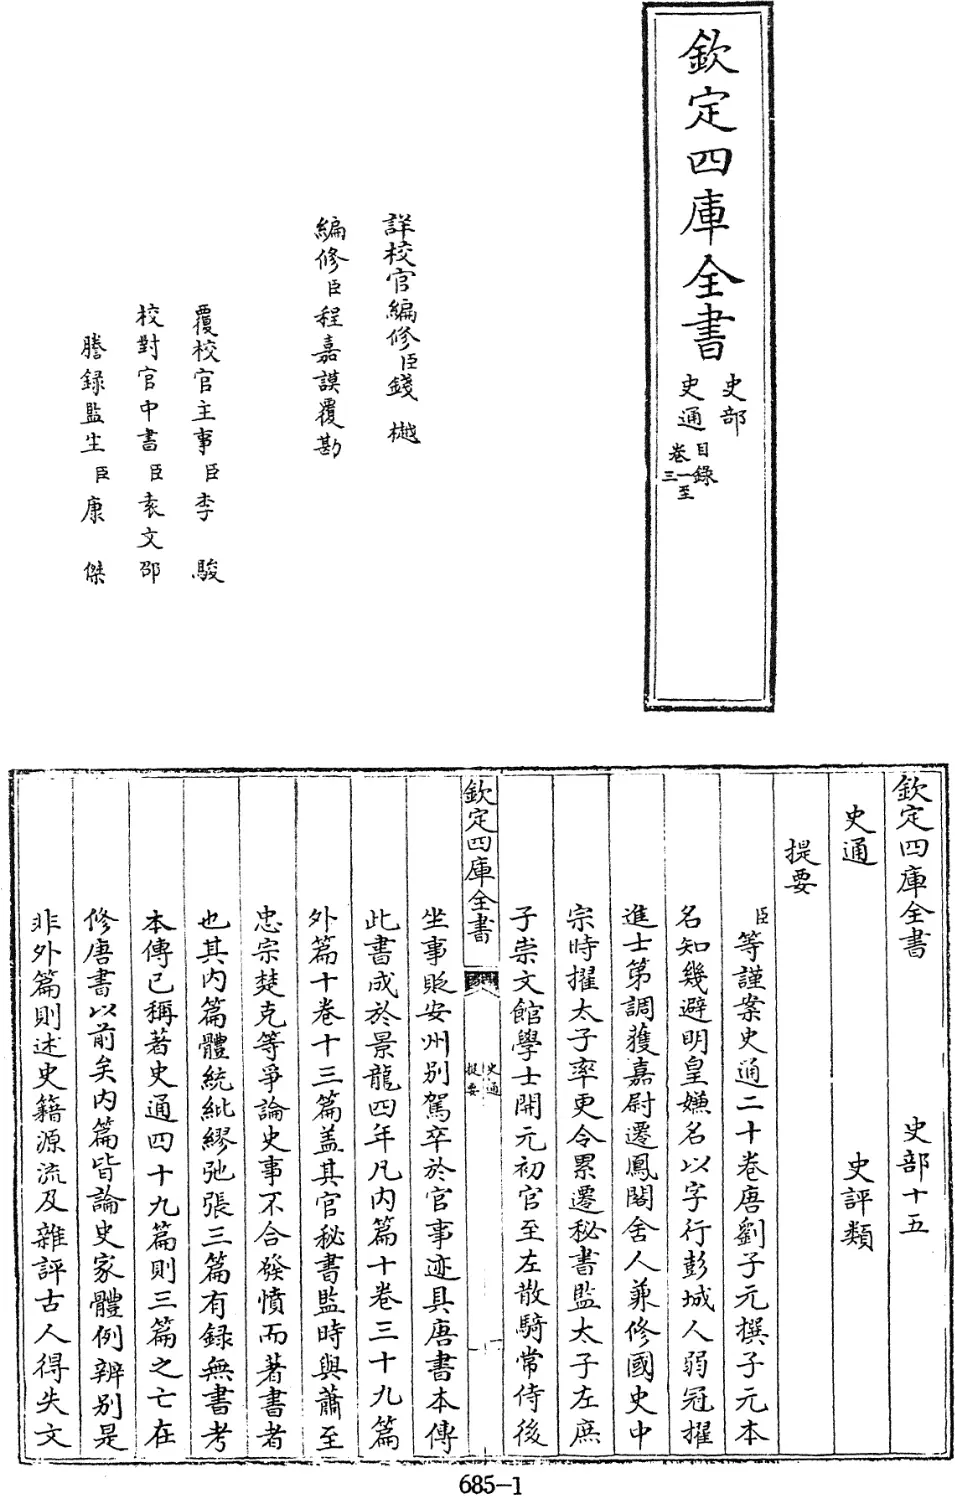 欽定四庫全書
史部
史通
目錄
卷一至三
詳校官編修臣錢樾
編修臣程嘉謨覆勘
覆校官主事臣李駿
校對官中書臣袁文邵
謄錄監生臣康傑
欽定四庫全書 史部十五
史通 史評類
提要
臣等謹案史通二十卷唐劉子元撰子元本
名知幾避明皇嫌名以字行彭城人弱冠擢
進士第調獲嘉尉遷鳳閣舍人兼修國史中
宗時擢太子率更令累遷秘書監太子左庶
子崇文館學士開元初官至左散騎常侍後
欽定四庫全書
史通
提要
一
坐事貶安州別駕卒於官事迹具唐書本傳
此書成於景龍四年凡內篇十卷三十九篇
外篇十卷十三篇蓋其官秘書監時與蕭至
忠宗楚克等爭論史事不合發憤而著書者
也其內篇體統紕繆弛張三篇有錄無書考
本傳已稱著史通四十九篇則三篇之亡在
修唐書以前矣內篇皆論史家體例辨別是
非外篇則述史籍源流及雜評古人得失文
685-1